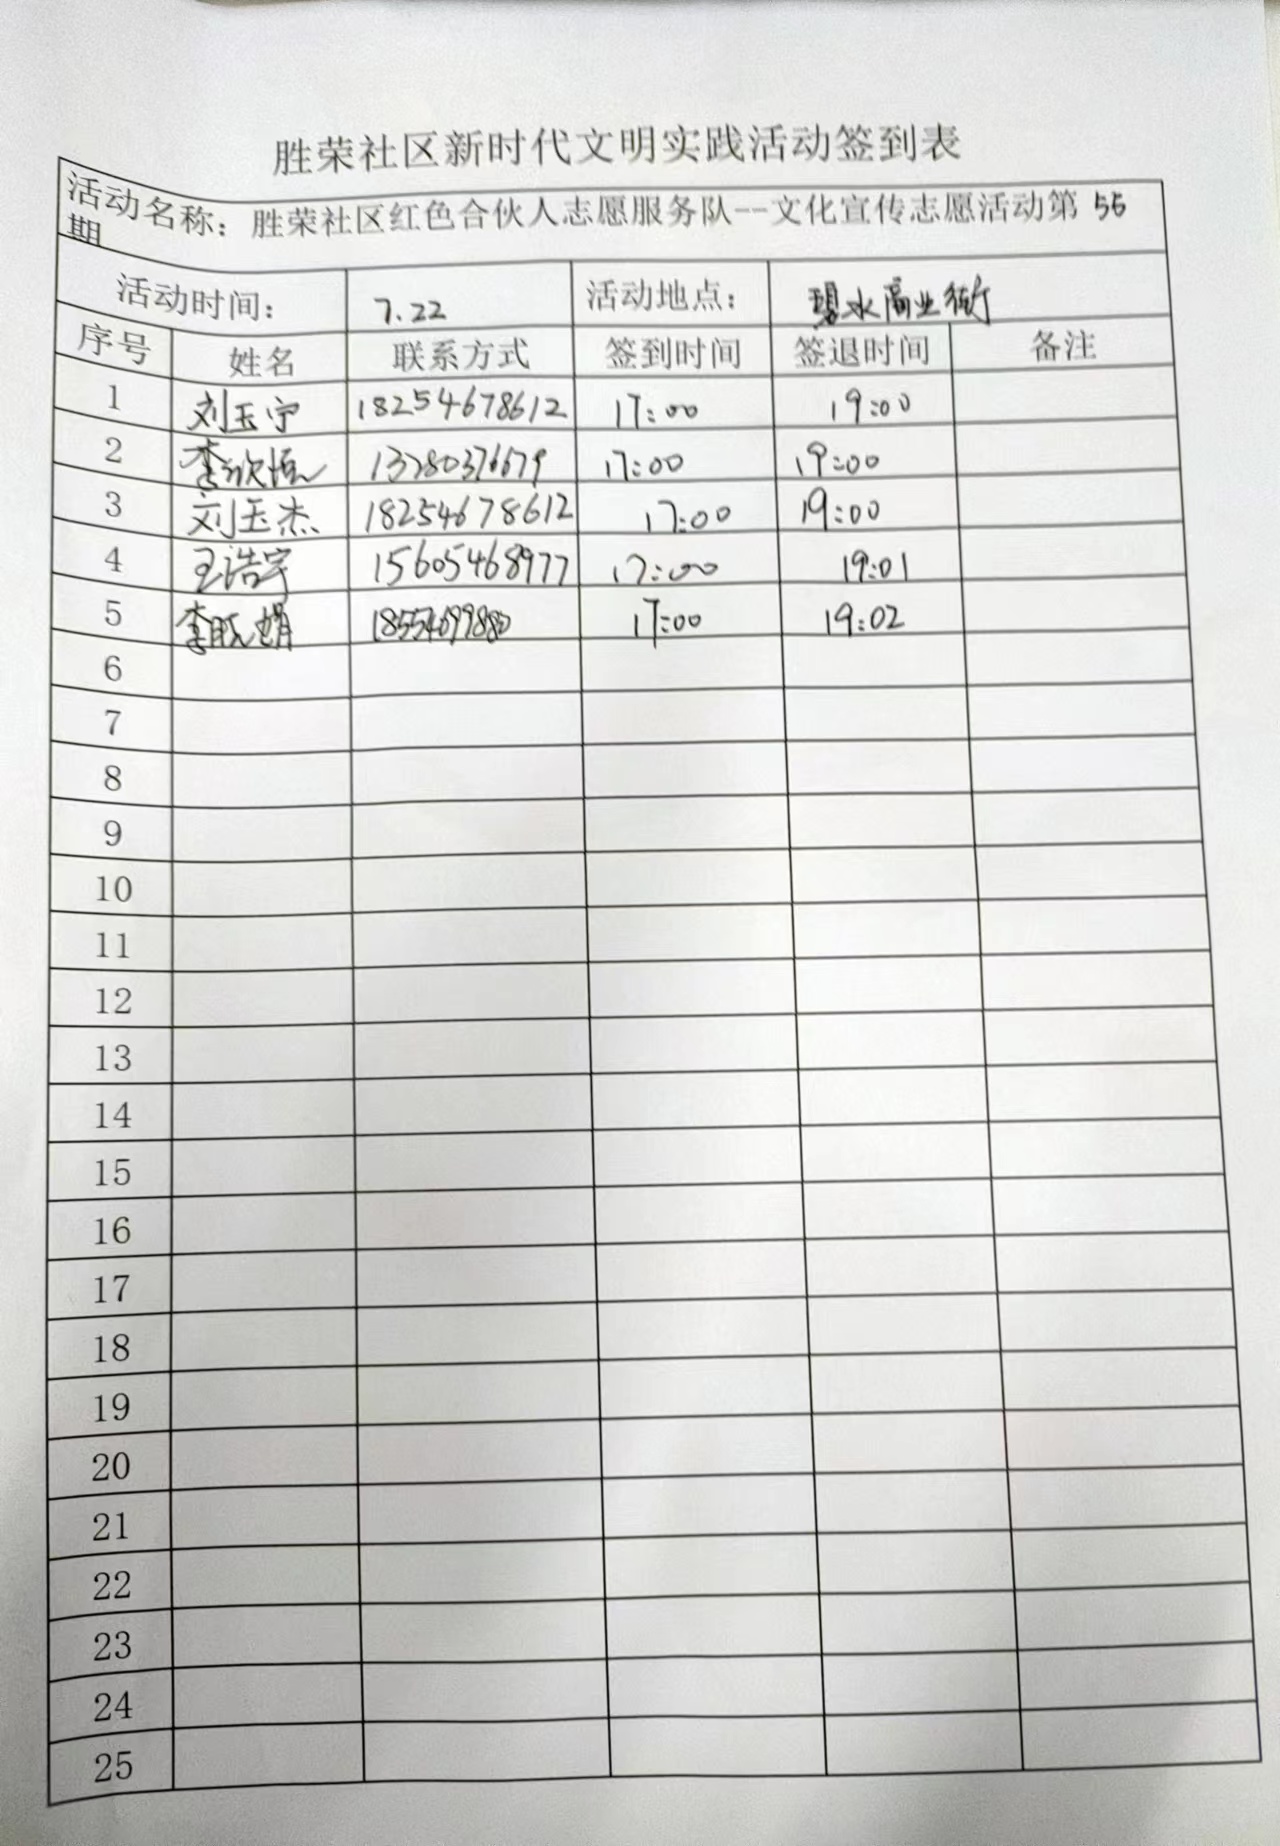 胜荣社区新时代文明实践活动签到表
活动名称：胜荣社区红色合伙人志愿服务队--文化宣传志愿活动第 55
期
活动时间： 7.22 活动地点： 碧水商业街
序号 姓名 联系方式 签到时间 签退时间 备注
1 刘玉宁 18254678612 17:00 19:00
2 李欣恒 13280376679 17:00 19:00
3 刘玉杰 18254678612 17:00 19:00
4 王浩宇 15605468977 17:00 19:01
5 17:00 19:02
6
7
8
9
10
11
12
13
14
15
16
17
18
19
20
21
22
23
24
25